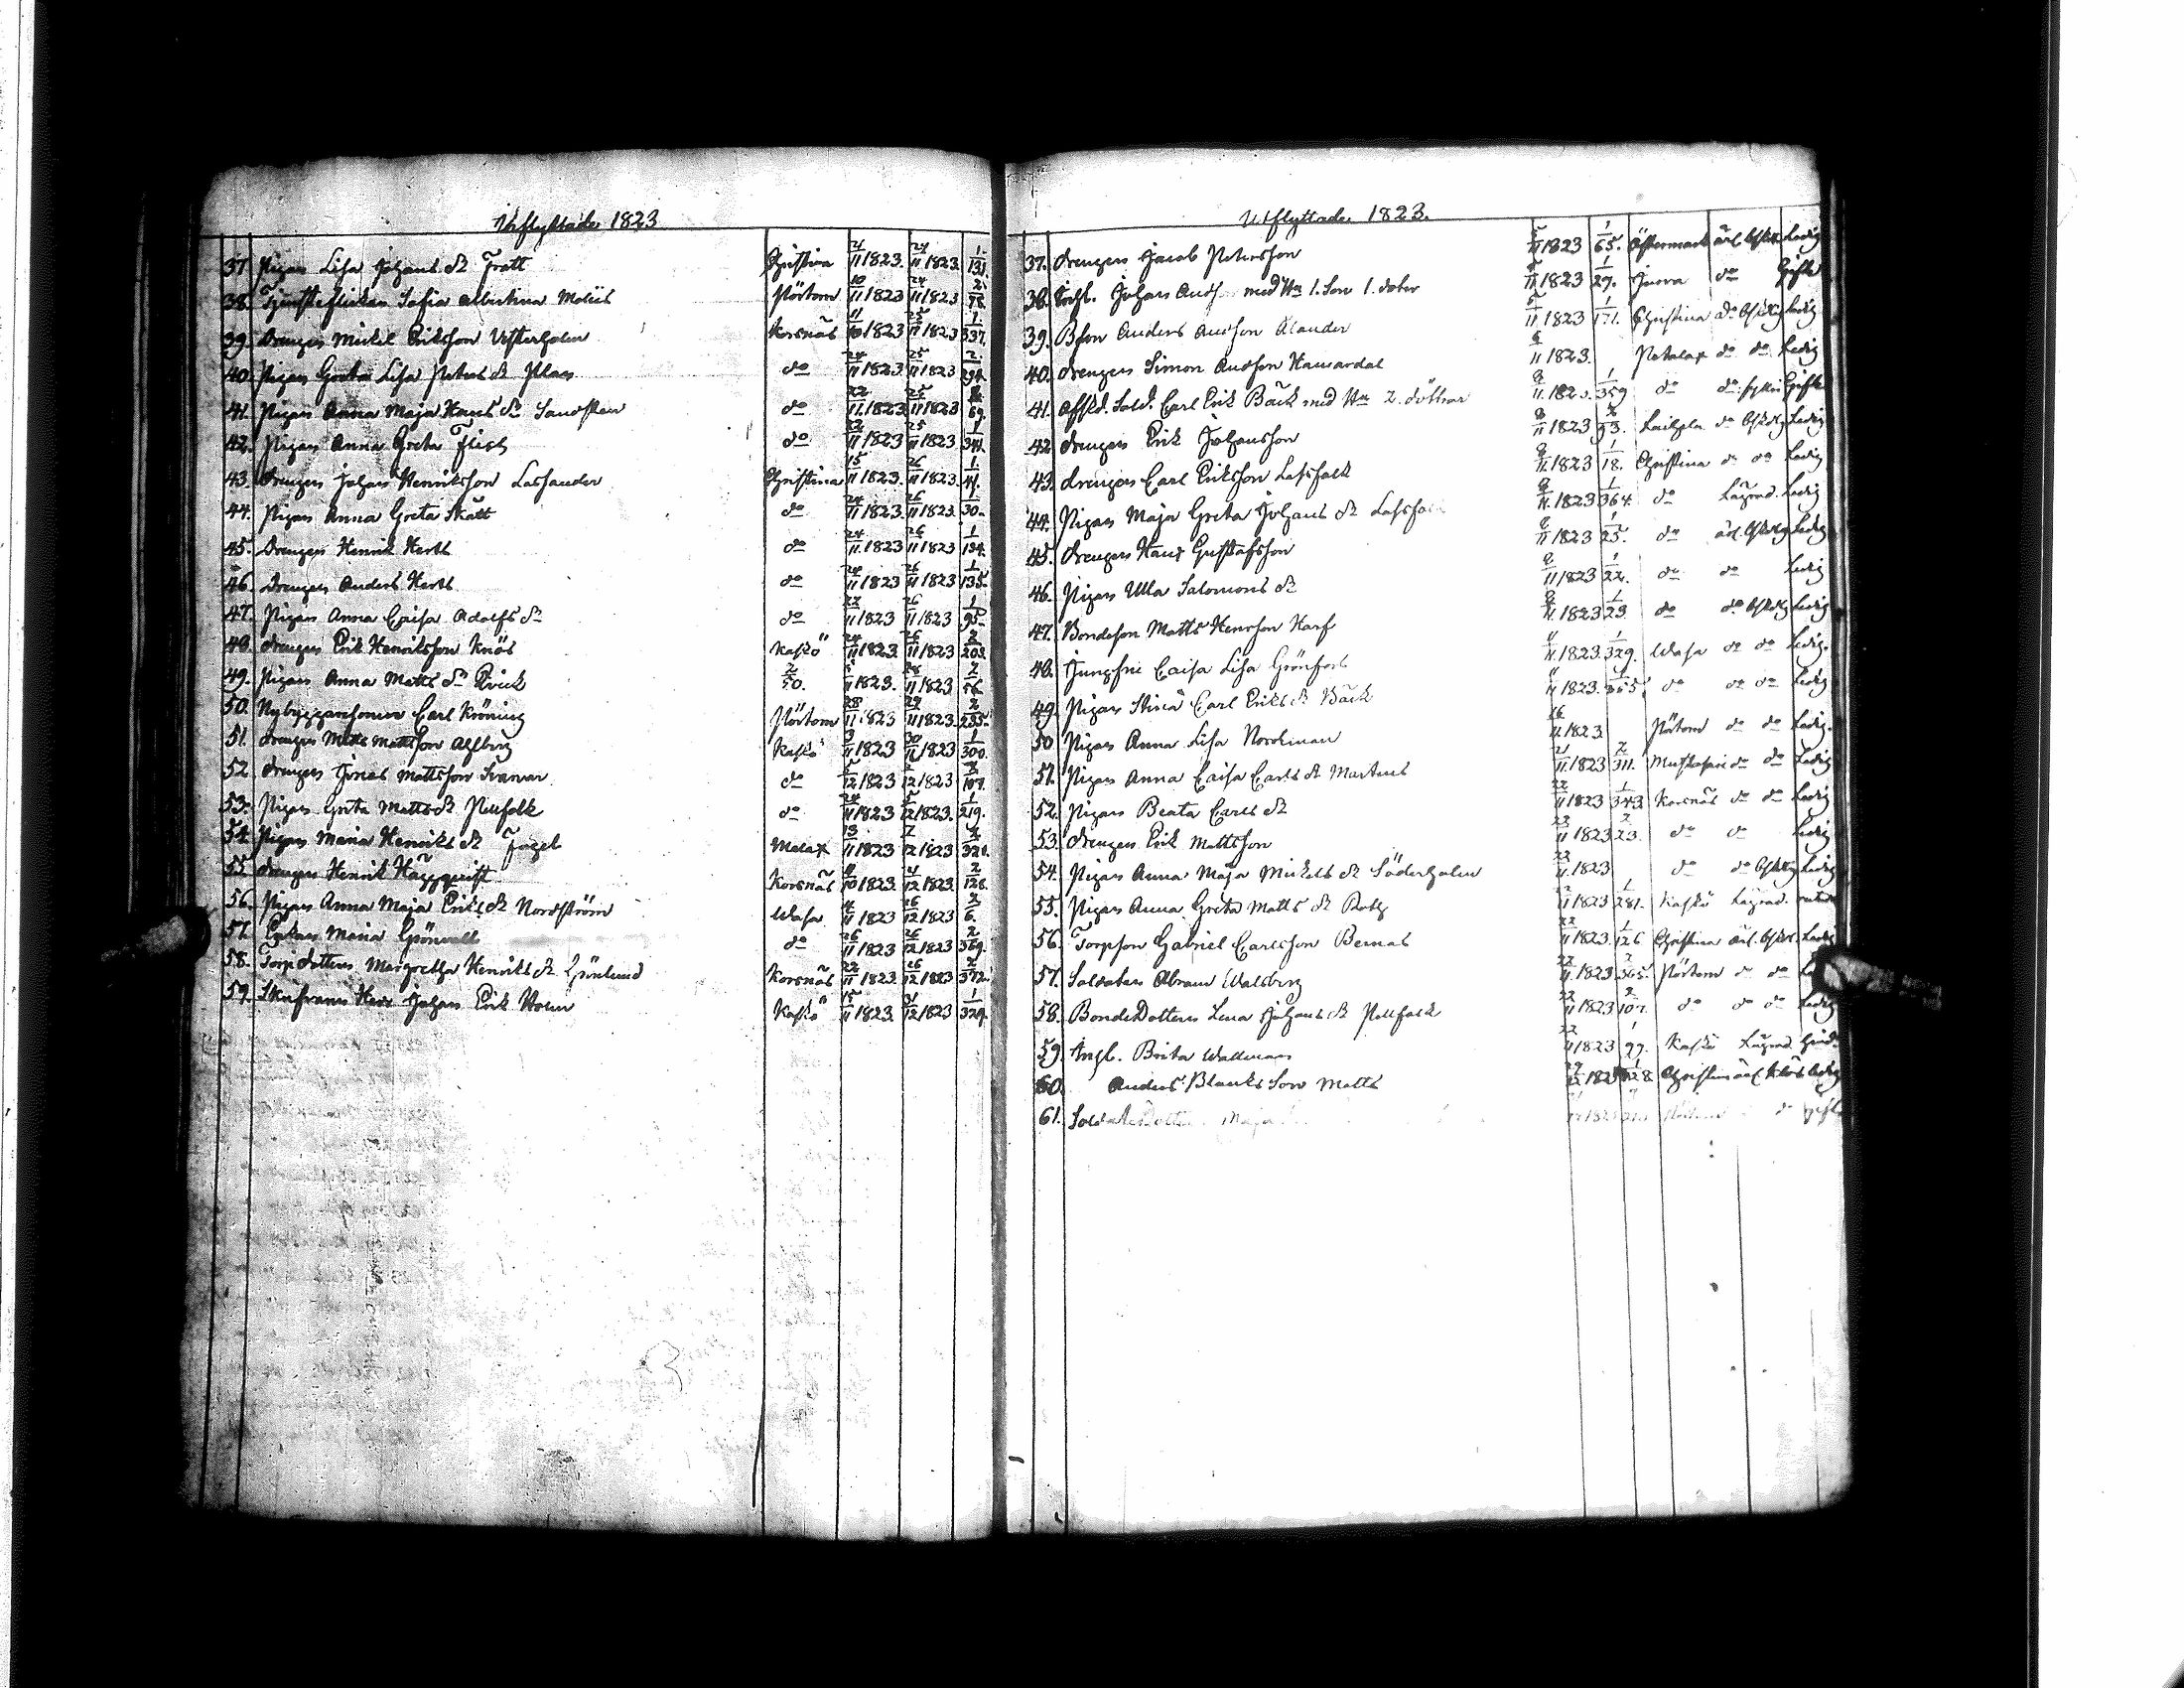 Inflyttade 1823
37. Pigan Lisa Johans dr Fratt Christina 21/11 1823. 24/11 1823 1/131.
38. Tjensteflickan Sofia Albertina Moliis Pörtom 10/11 1823 24/11 1823 2/78.
39. Drengen Mickel Eriksson Westerholm Korsnäs 11/10 1823 25/11 1823 1/337.
40. Pigan Greta Lisa Peters dr Plars do 24/11 1823 25/11 1823 2/294.
41. Pigan Anna Maja Hans dr Sandsten do 22/11 1823 25/11 1823 69.
42. Pigan Anna Greta Flisk do 22/11 1823 25/11 1823 1/341.
43. Drengen Johan Henriksson Lassander Christina 15/11 1823. 26/11 1823. 1/41.
44. Pigan Anna Greta Skatt do 24/11 1823. 26/11 1823. 1/30.
45. Drengen Henrik Herts do 24/11 1823 26/11 1823 1/134.
46. Drengen Anders Herts do 24/11 1823 26/11 1823 1/135.
47. Pigan Anna Caisa Adolfs dr do 22/11 1823 26/11 1823 1/95.
48. Drengen Erik Henriksson Knös Kaskö 24/11 1823. 26/11 1823 2/203.
49. Pigan Anna Matts dr Qvick 2/50. 11 1823. 28/11 1823 2/56.
50. Nybyggaresonen Carl Kröning Pörtom 28/11 1823 29/11 1823. 2/235.
51. Drengen Matts Mattsson Ahlberg Kaskö 3/11 1823 30/11 1823 1/300.
52. Drengen Jonas Mattsson Svanvar do 5/12 1823 12 1823 2/107.
53. Pigan Greta Matts dr Pellfolk do 24/11 1823 5/12 1823. 1/219.
54. Pigan Maria Henriks dr Fogel Malax 13/11 1823 7/12 1823 2/321.
55. Drengen Henrik Häggqvist Korsnäs 11/10 1823. 21/12 1823. 2/128.
56. Pigan Anna Maja Eriks dr Nordström Wasa 4/11 1823 26/12 1823 2/6.
57. Enkan Maria Grönvall do 26/11 1823 26/12 1823 2/369.
58. Torpdottren Margretha Henriks dr Grönlund Korsnäs 22/11 1823. 26/12 1823 2/372.
59. Skepparen Herr Johan Erik Holm Kaskö 15/11 1823. 31/12 1823 1/329.
Utflyttade 1823.
37. Drengen Jacob Petersson 5/11 1823 1/65. Östermark ärl. Ledig
38. Inhl. Johan Ands. med Hu 1. Son 1. doter 5/11 1823 1/27. Jurva do Gift
39. Bson Anders Andsson Ålander 5/11 1823 1/171. Christina do Ledig
40. Drengen Simon Andsson Hamardal 6/11 1823. Petalax do do Ledig
41. Afsked. Sold. Carl Erik Bäck med Hu 2. döttrar 8/11 1823. 1/359 do do Gift
42. Drengen Erik Johansson 8/11 1823 93. Laihela do Ledig
43. Drengen Carl Eriksson Lassfalk 8/11 1823 1/18. Christina do do Ledig
44. Pigan Maja Greta Johans dr 8/11 1823 1/364. do Lägrad. Ledig
45. Drengen Hans Gustafsson 8/11 1823 1/25. do ärl. Ledig
46. Pigan Ulla Salomons dr 8/11 1823 1/22. do do Ledig
47. Bondeson Matts Henrsson Harf 8/11 1823 1/23. do do Ledig
48. Jungfru Caisa Lisa Grönfors 11/11 1823. 1/329. Wasa do do Ledig.
49. Pigan Stina Carl Eriks dr Bäck 11/11 1823. 1/355. do do do Ledig
50 Pigan Anna Lisa Nordman 16/11 1823 Pörtom do do Ledig.
51. Pigan Anna Caisa Carls dr Martens 21/11 1823 2/311. Mustasari do do Ledig
52. Pigan Beata Carls dr 22/11 1823 1/343. Korsnäs do do Ledig
53. Drengen Erik Mattsson 23/11 1823 2/23. do do Ledig
54. Pigan Anna Maja Mickels dr Söderholm 23/11 1823 do do Ledig
55. Pigan Anna Greta Matts dr 11 1823 1/281. Kaskö Lägrad.
56. Torpson Gabriel Carlsson Bernas 22/11 1823. 1/126 Christina ärl. Ledig
57. Soldaten Abram Walsberg 22/11 1823 365. Pörtom do do
58. BondeDottren Lena Johans dr Pellfolk 22/11 1823 2/107. do do do Ledig
59. Inhl. Brita Wallman 22/11 1823 1/99. Kaskö Lägrad
60. Anders Blanks Son Matts 29/12 1823 1/128 Christina ärl. ledig
61. Maja